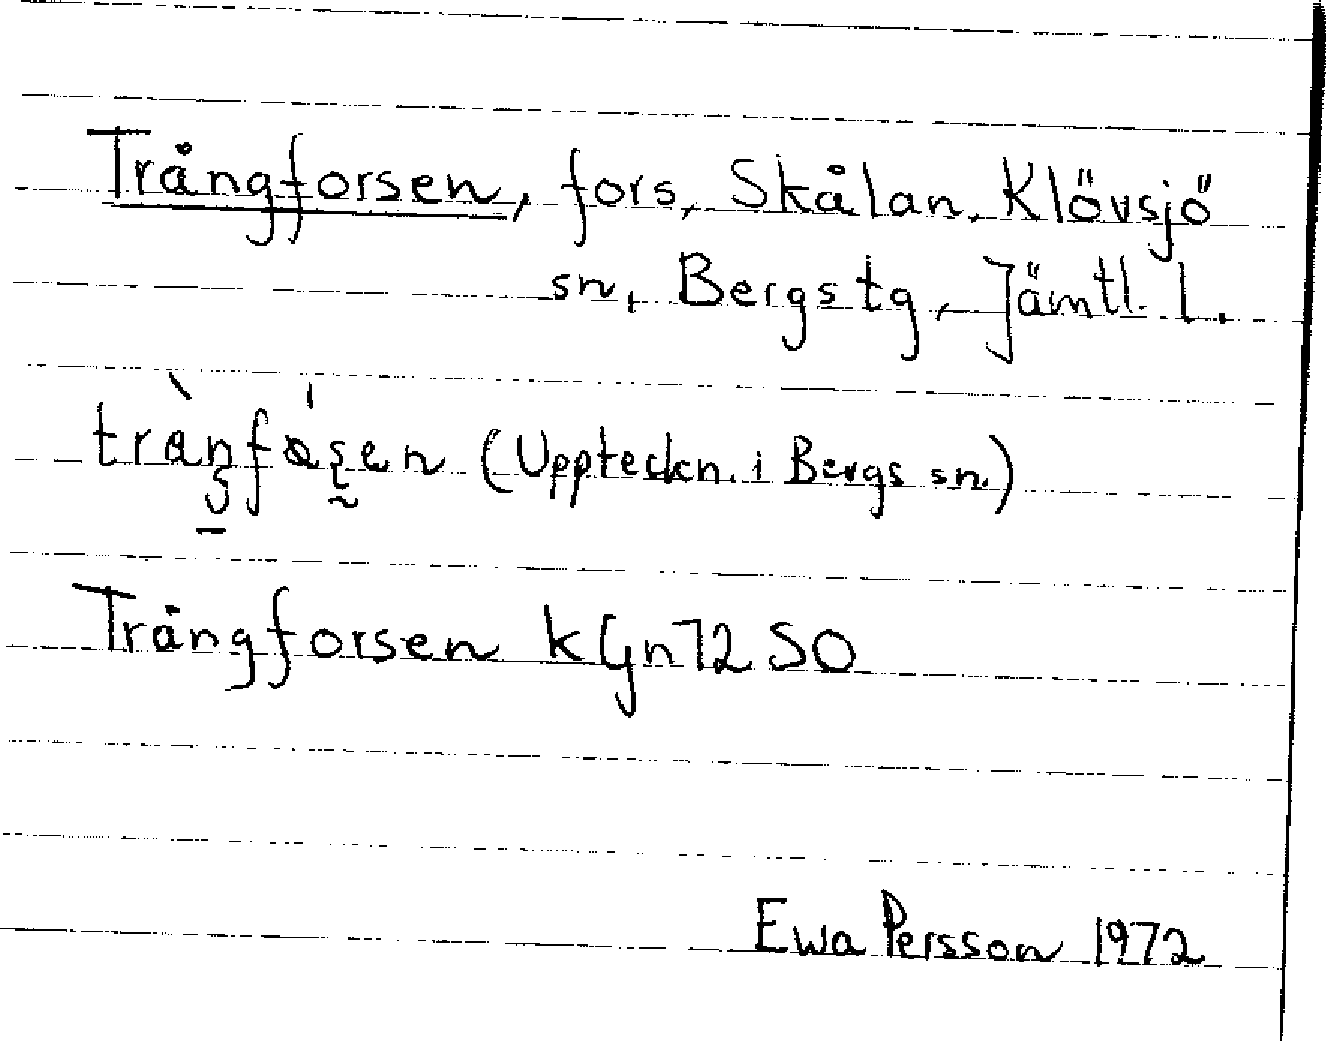 Trångforsen, fors, Skålan, Klövsjö
sn, Bergs tg, Jämtl. l.
(Uppteckn. i Bergs sn.)
Trångforsen kGn72 SO
Ewa Persson 1972